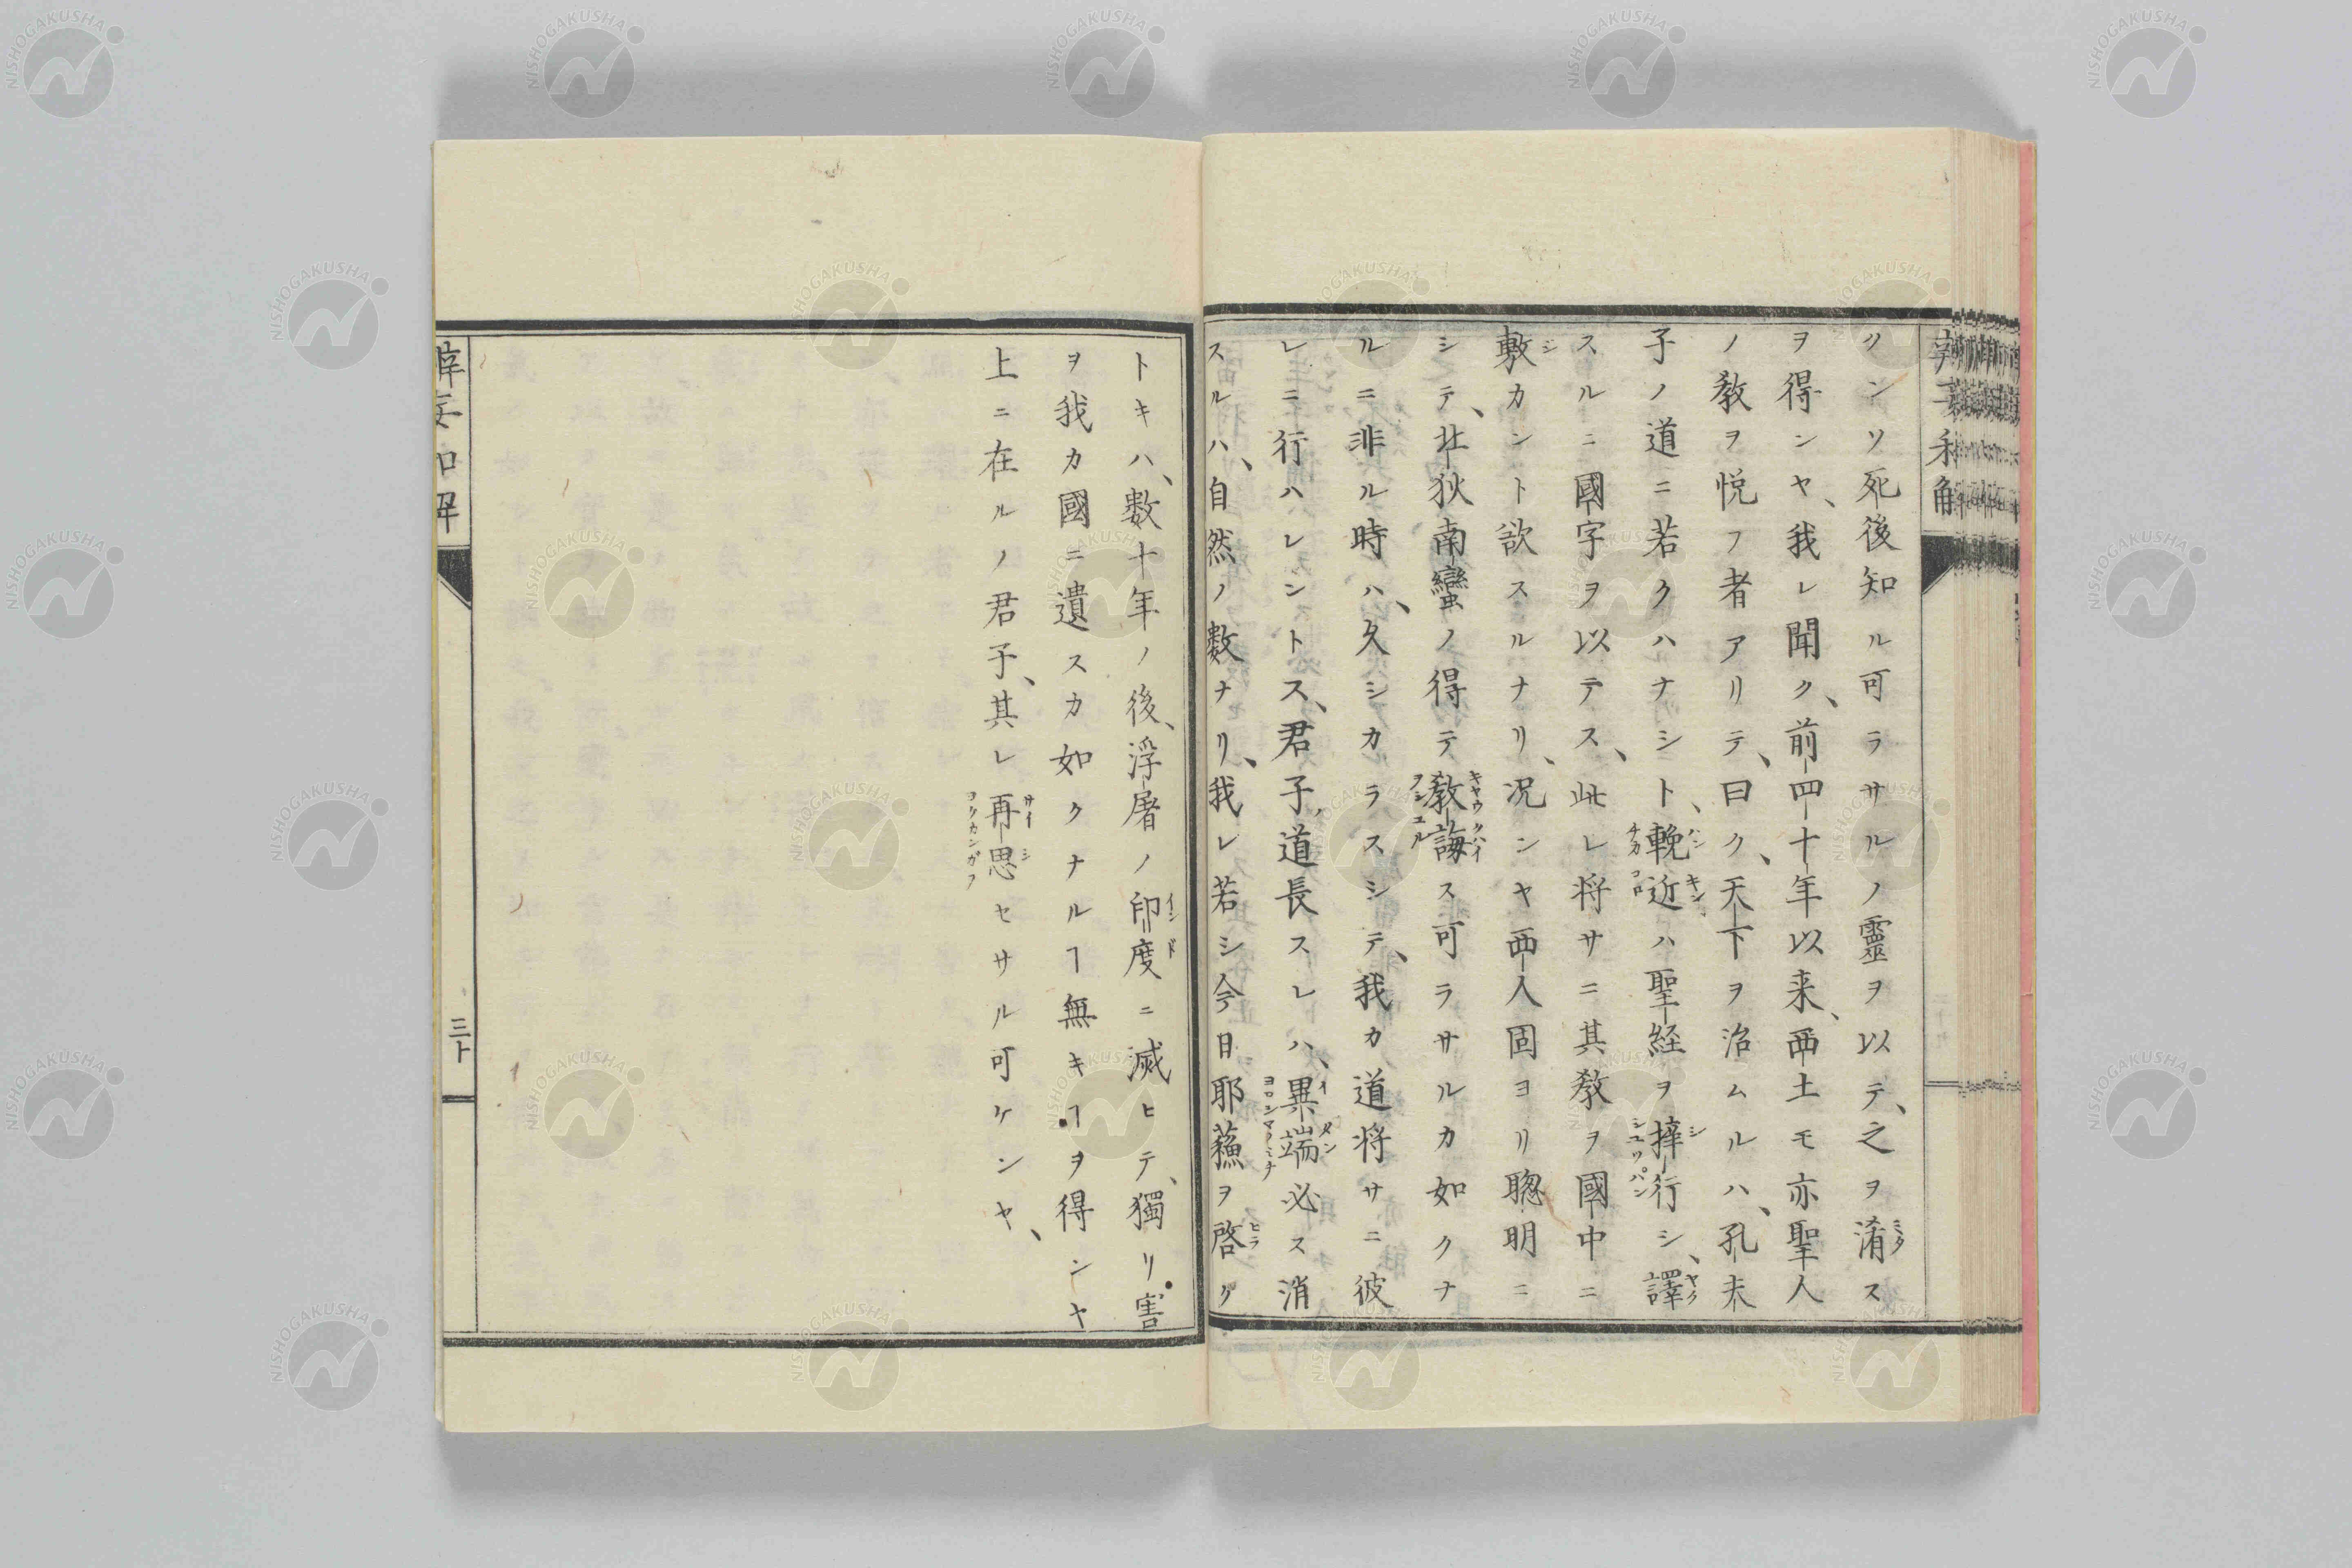 クンソ死後知ル可ラサルノ靈ヲ以テ、之ヲ淆ス
ヲ得ンヤ、我レ聞ク、前四十年以来、西土モ亦聖人
ノ教ヲ悦フ者アリテ、曰ク、天下ヲ治ムルハ、孔夫
子ノ道ニ若クハナシト、輓近ハ聖経ヲ摔行シ、譯
スルニ國字ヲ以テス、此レ将サニ其教ヲ國中ニ
敷カント欲スルナリ、况ンヤ西人固ヨリ聰明ニ
シテ、北狄南蠻ノ得テ教誨ス可ラサルカ如クナ
ルニ非ル時ハ、久シカラスシテ、我カ道将サニ彼
レニ行ハレントス、君子道長スレハ、異端必ス消
スルハ、自然ノ数ナリ、我レ若シ今日耶蘓ヲ啓ク
トキハ、数十年ノ後、浮屠ノ印度ニ滅ヒテ、獨リ害
ヲ我カ國ニ遺スカ如クナルヿ無キヿヲ得ンヤ
上ニ在ルノ君子、其レ再思セサル可ケンヤ、
三十
NISHOGAKUSHA